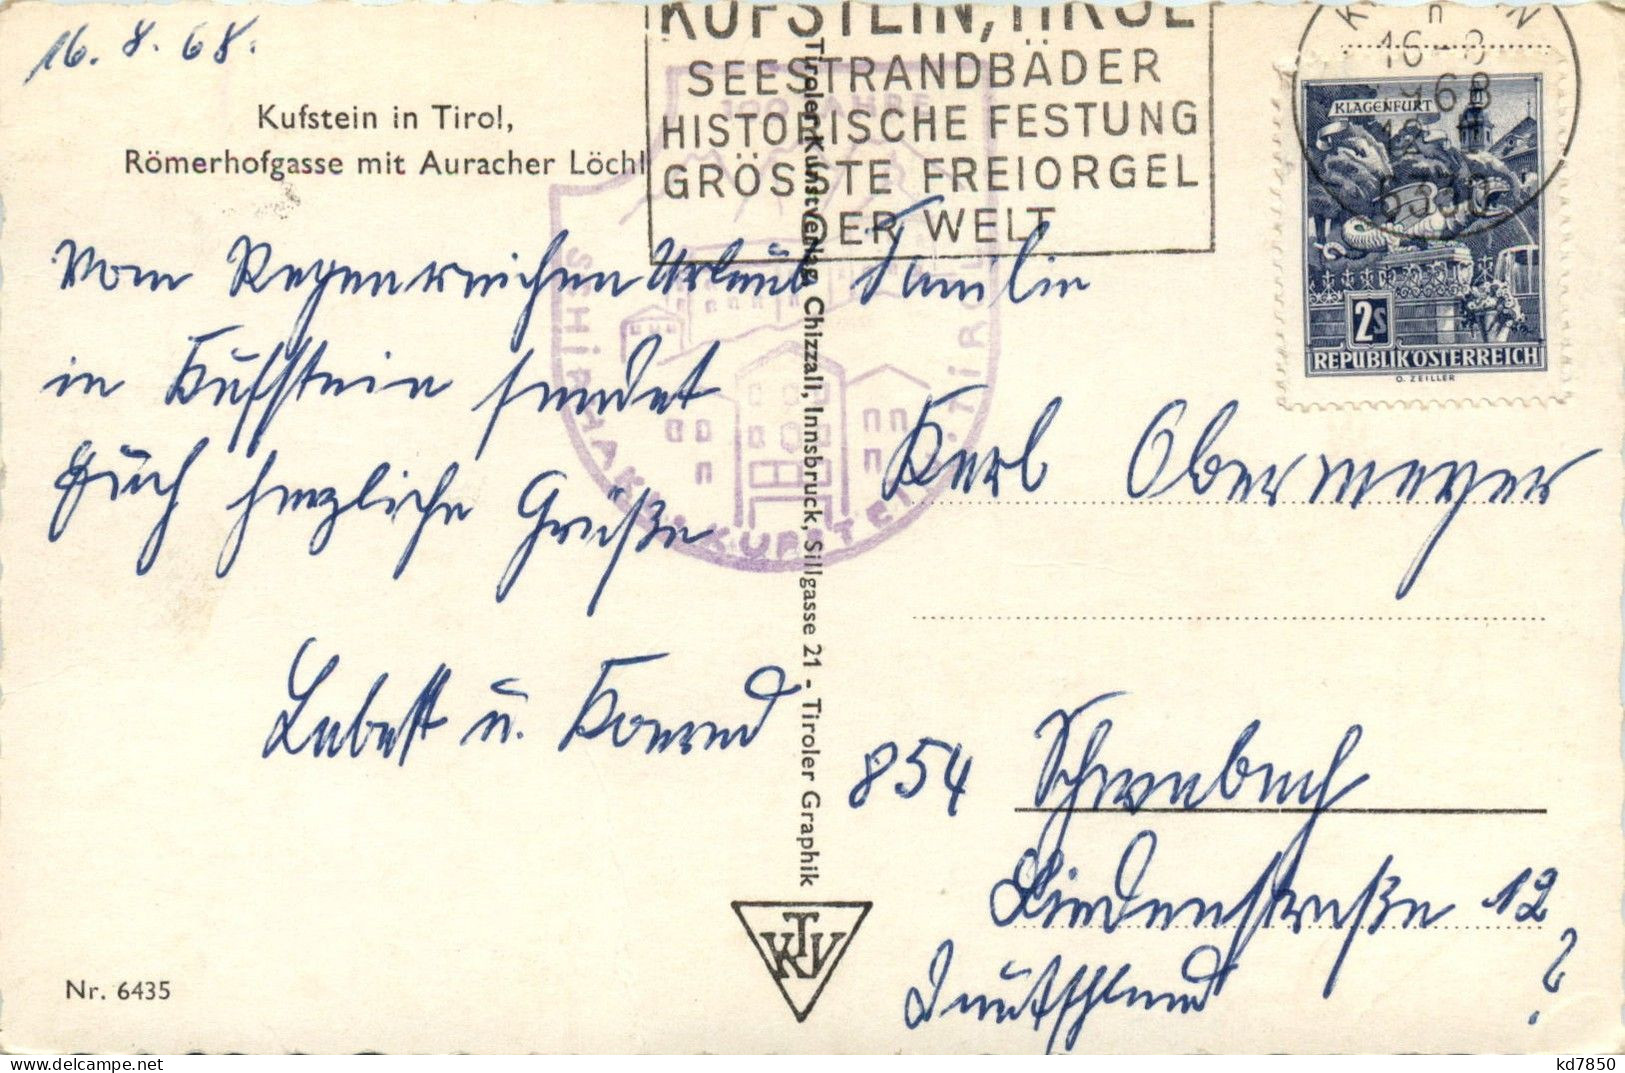 16. 8. 68.
Kufstein in Tirol,
Römerhofgasse mit Auracher Löchl
KUFSTEIN, TIROL
SEESTRANDBÄDER
HISTORISCHE FESTUNG
GRÖSSTE FREIORGEL
DER WELT
16-8
68
6330
KLAGENFURT
2S
REPUBLIK ÖSTERREICH
O. ZEILLER
100 JAHRE
KUFSTEIN, TIROL
Vom Regenreichen Urlaub
in Kufstein sendet
Euch herzliche Grüße
Babett u. Konrad
Tiroler Kunstverlag Chizzali, Innsbruck, Sillgasse 21 - Tiroler Graphik
TKV
Nr. 6435
Familie
Karl Obermeyer
854 Schwabach
Lindenstraße 12
Deutschland ?
kd7850